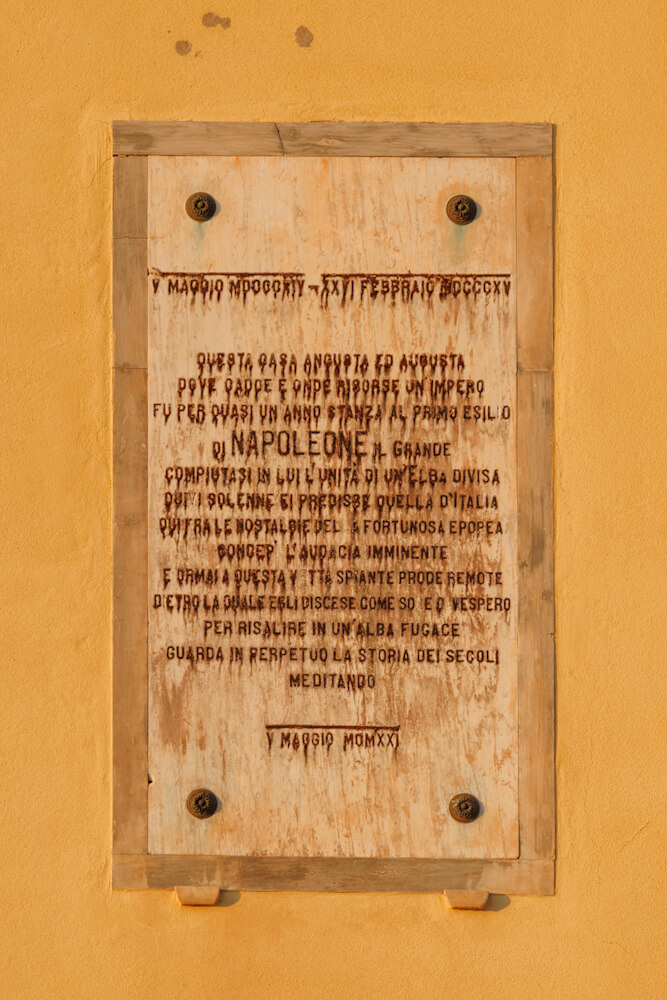 V MAGGIO MDCCCXIV – XXVI FEBBRAIO MDCCCXV
QUESTA CASA ANGUSTA ED AUGUSTA
DOVE CADDE E ONDE RISORSE UN IMPERO
FU PER QUASI UN ANNO STANZA AL PRIMO ESILIO
DI NAPOLEONE IL GRANDE
COMPIUTASI IN LUI L'UNITÀ DI UN'ELBA DIVISA
QUIVI SOLENNE EI PREDISSE QUELLA D'ITALIA
QUI FRA LE NOSTALGIE DELLA FORTUNOSA EPOPEA
CONCEPÌ L'AUDACIA IMMINENTE
E ORMAI A QUESTA VETTA SPIANTE PRODE REMOTE
DIETRO LA QUALE EGLI DISCESE COME SOLE O VESPERO
PER RISALIRE IN UN'ALBA FUGACE
GUARDA IN PERPETUO LA STORIA DEI SECOLI
MEDITANDO
V MAGGIO MCMXXI